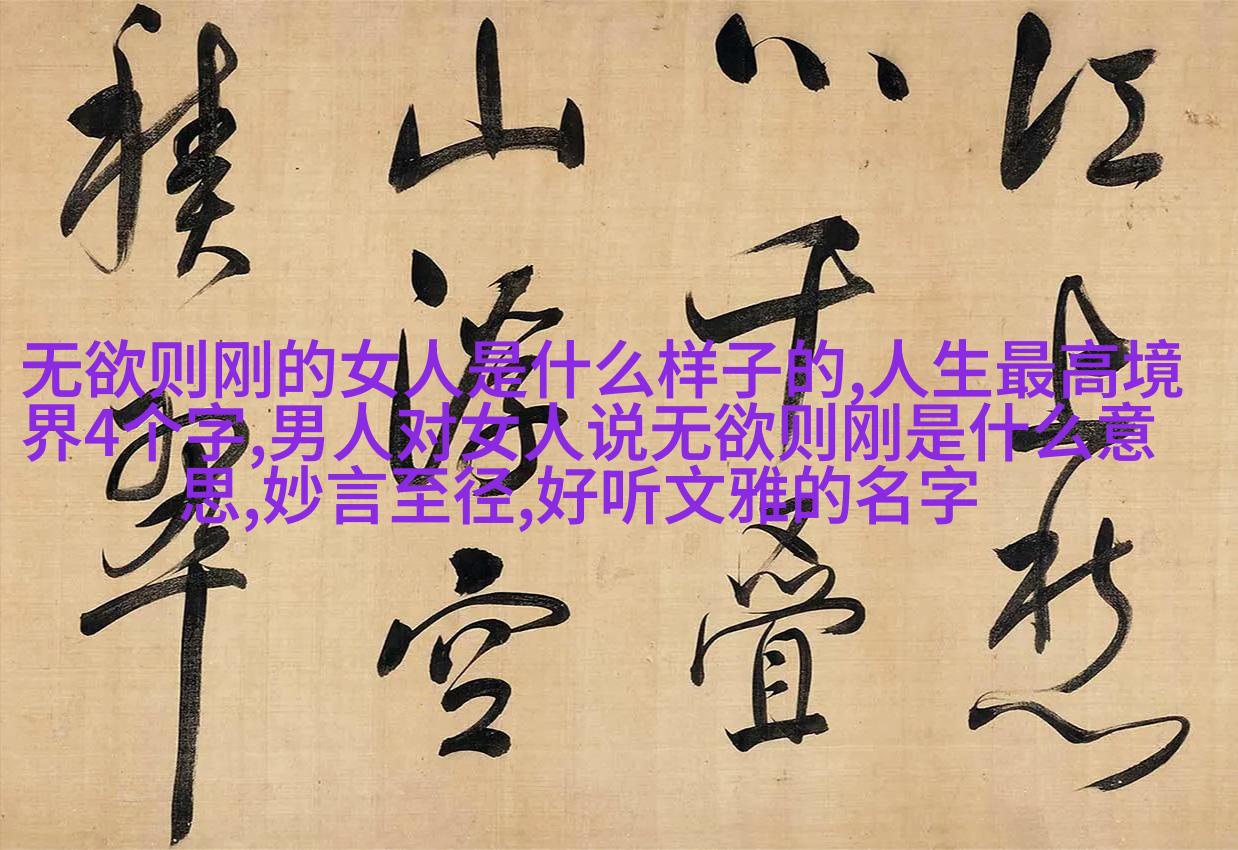 江上愁
心千疊
山浮空
積翠
无欲则刚的女人是什么样子的,人生最高境
界4个字,男人对女人说无欲则刚是什么意
思,妙言至径,好听文雅的名字